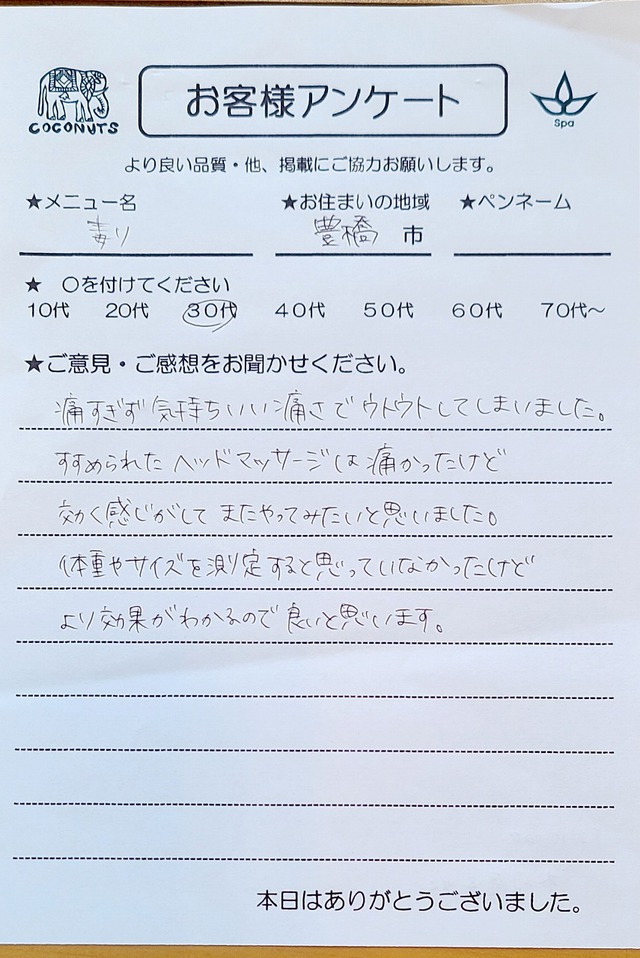 COCONUTS
お客様アンケート
Spa
より良い品質・他、掲載にご協力お願いします。
★メニュー名 ★お住まいの地域 ★ペンネーム
豊橋 市
★ 〇を付けてください
10代 20代 30代 40代 50代 60代 70代～
★ご意見・ご感想をお聞かせください。
痛すぎず気持ちいい痛さでウトウトしてしまいました。
すすめられたヘッドマッサージは痛かったけど
効く感じがしてまたやってみたいと思いました。
体重やサイズを測定すると思っていなかったけど
より効果がわかるので良いと思います。
本日はありがとうございました。